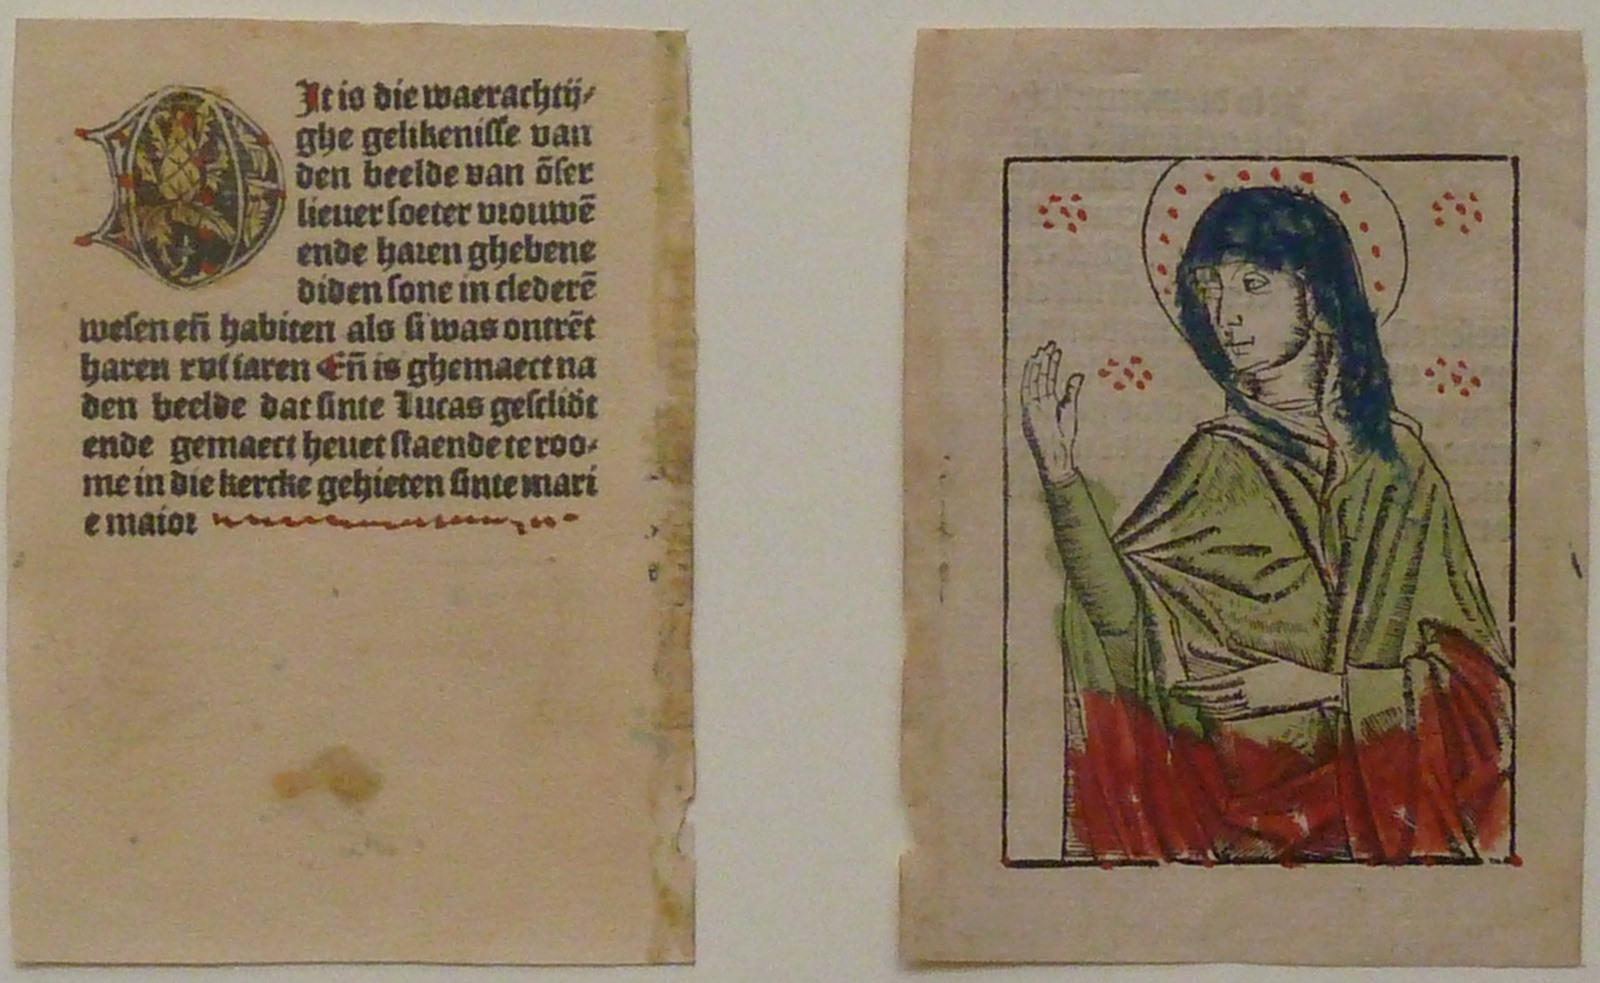 DJt is die waerachtij⸗
ghe gelikenisse van
den beelde van ōser
lieuer soeter vrouwē
ende haren ghebene
diden sone in clederē
wesen eñ habiten als si was ontrēt
haren xvi iaren Eñ is ghemaect na
den beelde dat sinte Lucas gescildt
ende gemaect heuet staende te roo⸗
me in die kercke gehieten sinte mari
e maior